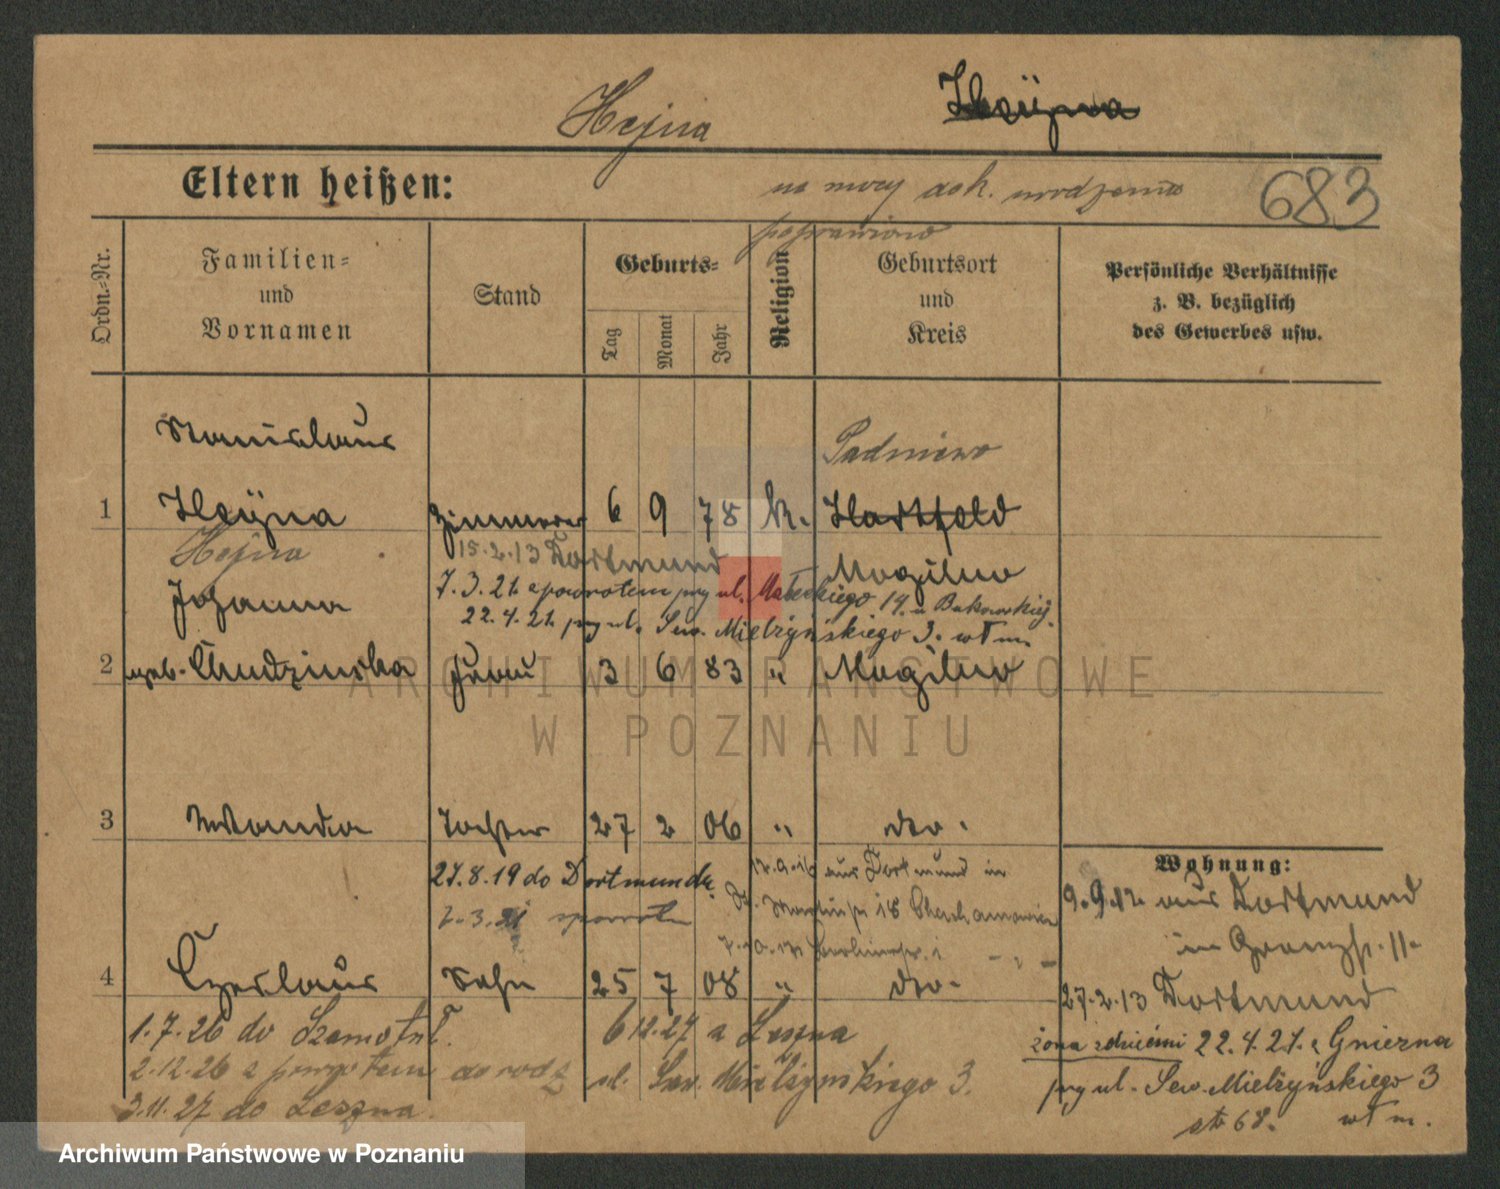 Hejna
Heÿna
Eltern heißen:
na mocy dok. urodzenia
683
poprawiono
Ordn.-Nr.
Familien-
und
Vornamen
Stand
Geburts-
Tag
Monat
Jahr
Religion
Geburtsort
und
Kreis
Persönliche Verhältnisse
z. B. bezüglich
des Gewerbes usw.
Stanislaus
Padniewo
1 Heÿna Zimmerer 6 9 78 k. Hartfeld
Hejna
15.2.13 Dortmund
Mogilno
Johanna
7.3.21 z powrotem przy ul. Małeckiego 14 u Bukowskiej
22.4.21 przy ul. Sew. Mielżyńskiego 3. wł m.
2 geb. Chudzinska Frau 3 6 83 " Mogilno
ARCHIWUM PAŃSTWOWE
W POZNANIU
3 Wanda Tochter 27 2 06 " dto.
27.8.19 do Dortmundu
aus Dortmund in
18
Wohnung:
9.9.12 aus Dortmund
in 11
4 Czeslaus Sohn 25 7 08 " dto.
27.2.13 Dortmund
1.7.26 do Szamotuł.
6 12.27 z Leszna
żona z dziećmi 22.4.21. z Gniezna
2.12.26 z powrotem do rodz
ul. Sew. Mielżyńskiego 3.
przy ul. Sew. Mielżyńskiego 3
3.11.27 do Leszna.
str 68. wł m.
Archiwum Państwowe w Poznaniu